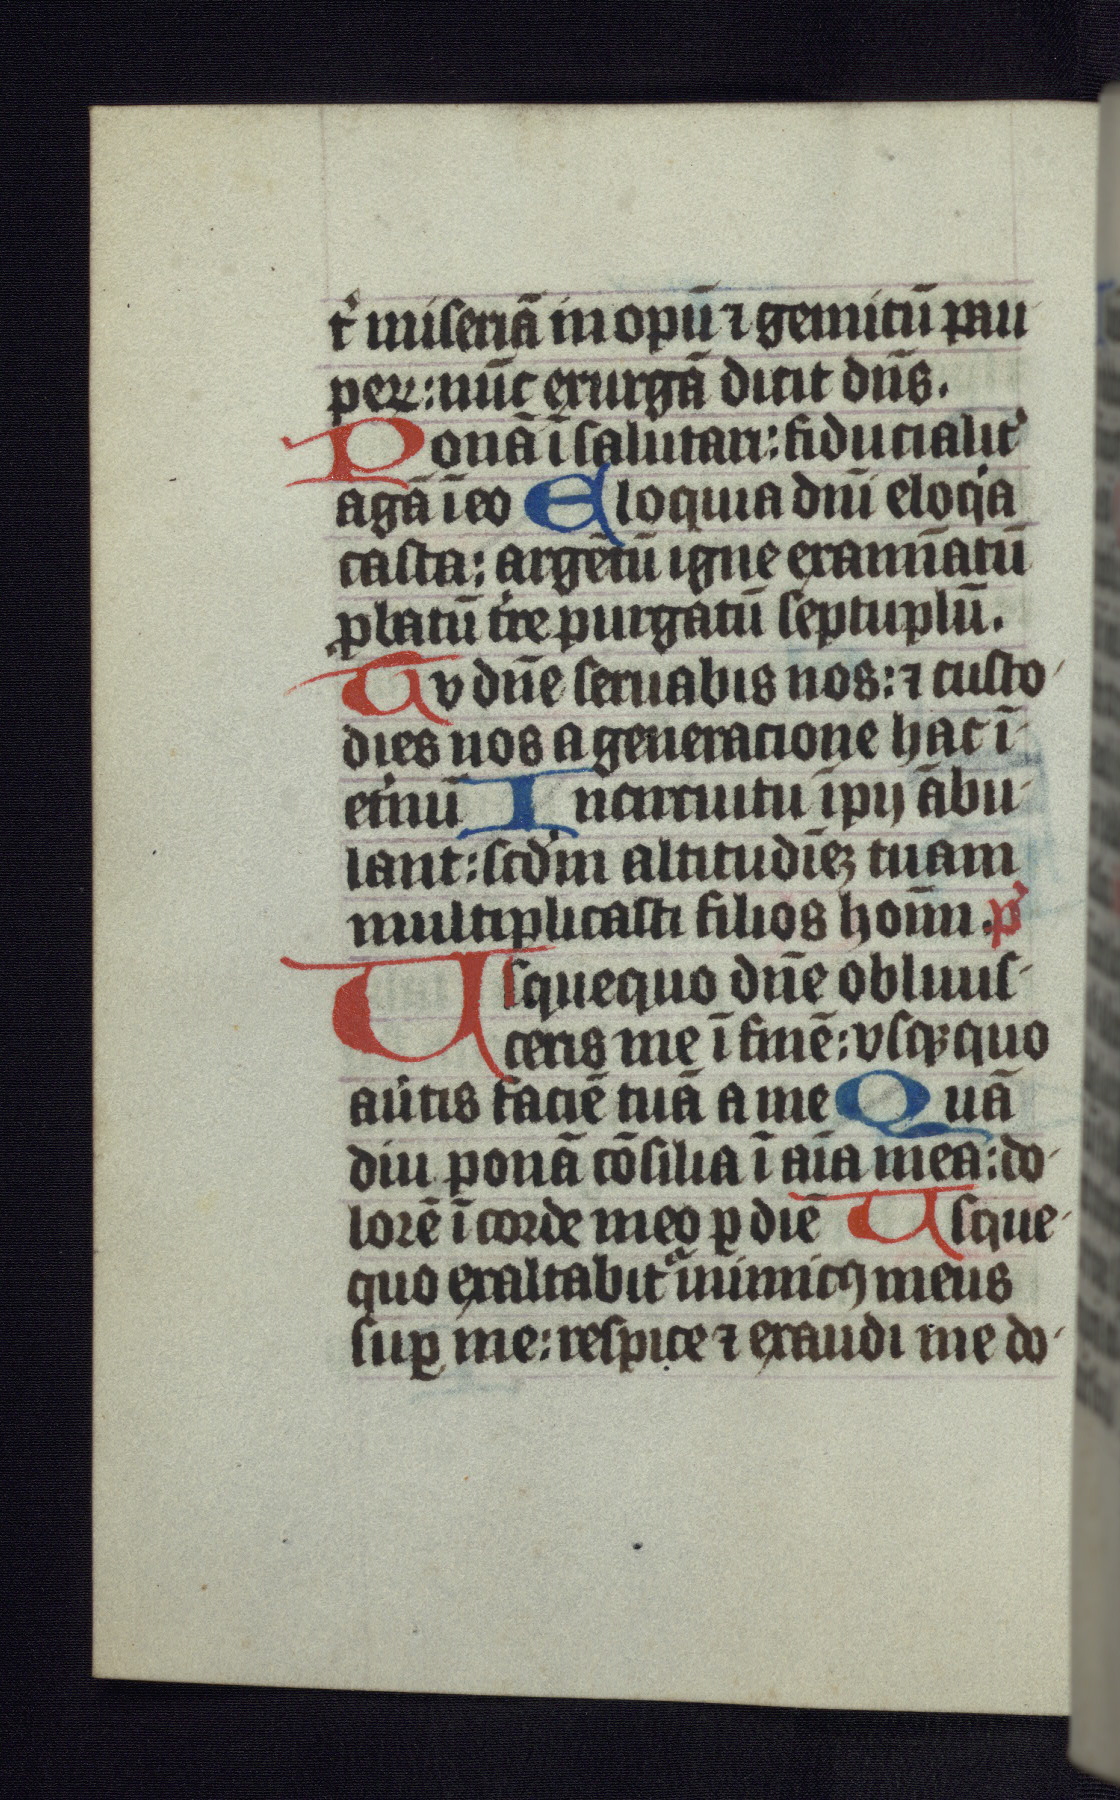 t᷑ miseriā inopū ⁊ gemitū pau
peꝝ: nūc exurgā dicit dn̄s.
Ponā ī salutari: fiducialit᷑
agā ī eo Eloquia dn̄i eloq̇a
casta: argētū igne examīatū
ꝓbatū t᷑re purgatū septuplū.
Tv dn̄e seruabis nos: ⁊ custo-
dies nos a generacione hac ī-
et᷑nū In circuitu īpij ābu-
lant: scd᷑m altitudīeꝫ tuam
multiplicasti filios hoīm. p̄s
Usquequo dn̄e obliuis-
ceris me ī finē: vsqꝫquo
au᷑tis faciē tuā a me Quā
diu ponā cōsilia ī aīa mea: do-
lorē ī corde meo ꝑ diē Usque-
quo exaltabit᷑ inimicꝯ meus
suꝑ me: respice ⁊ exaudi me do-